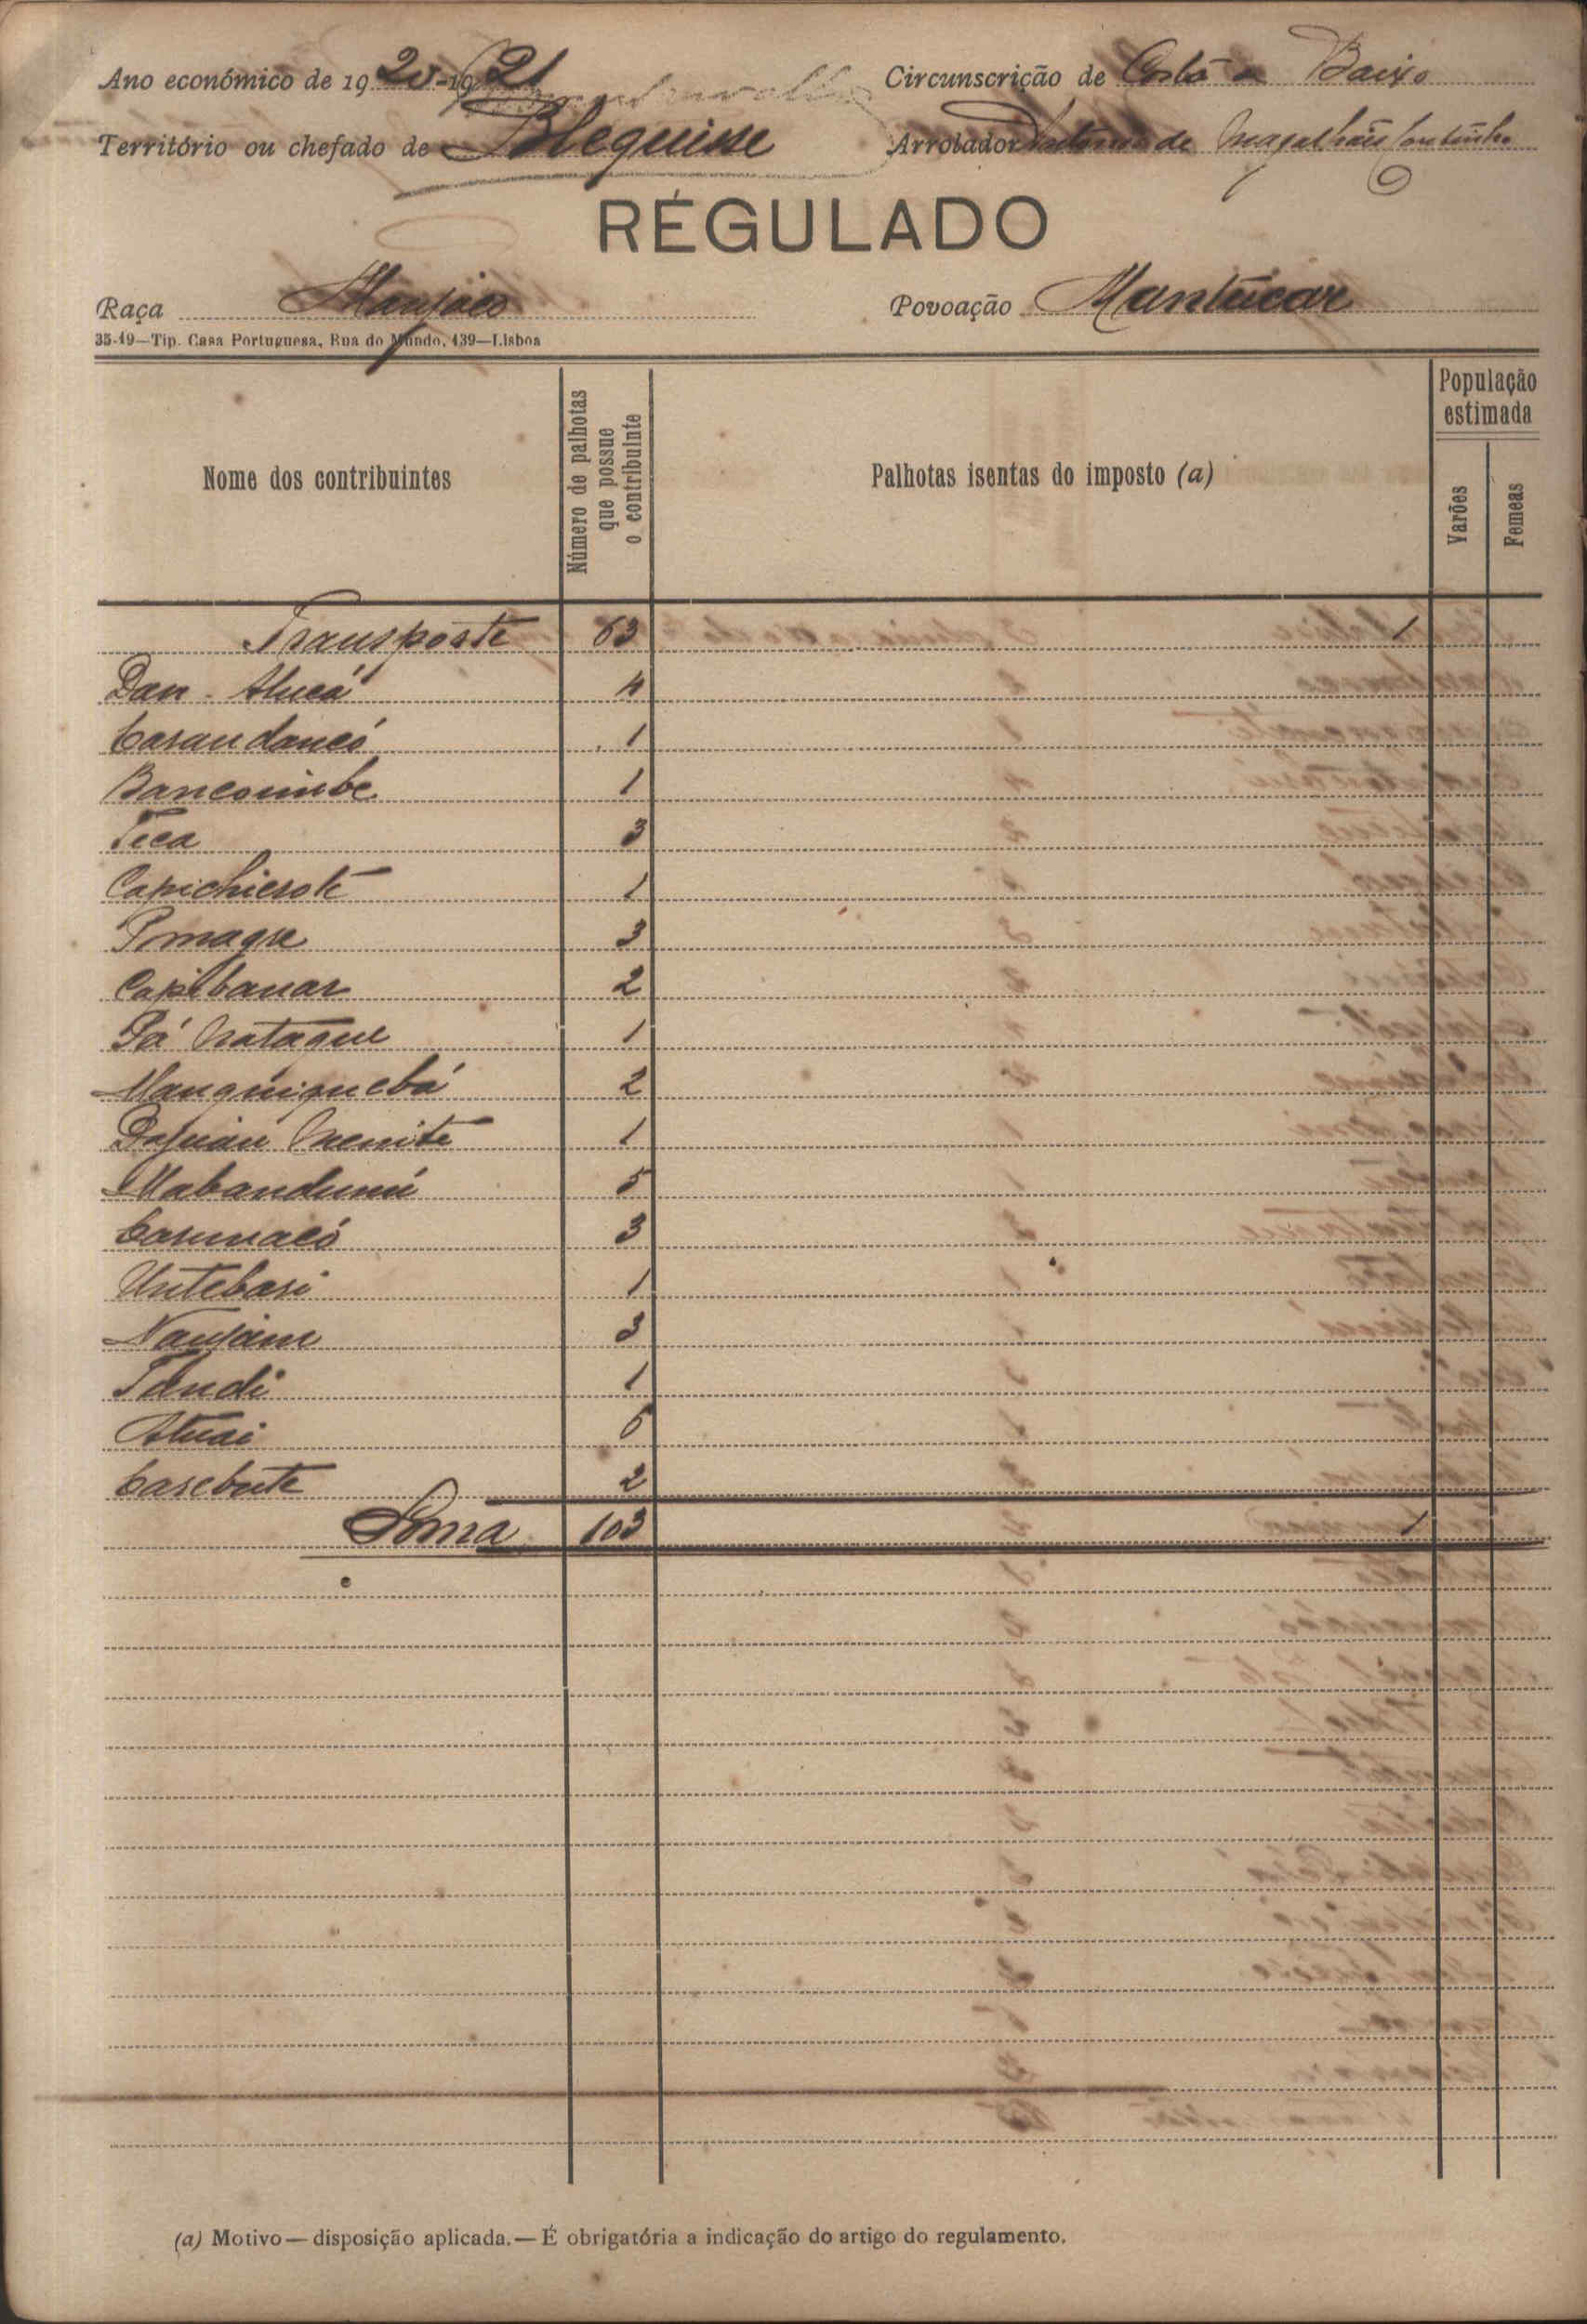 Ano económico de 1920-1921 Circunscrição de Costa de Baixo
Território ou chefado de Blequisse Arrolador António de Magalhães Coutinho
RÉGULADO
Raça Manjaco Povoação Mantucar
35-19—Tip. Casa Portuguesa, Rua do Mundo, 139—Lisboa
Nome dos contribuintes
Número de palhotas que possue o contribuinte
Palhotas isentas do imposto (a)
População estimada
Varões
Femeas
Transporte 63 1
Dan-Alucá 4
Casandancó 1
Bancoimbe 1
Teca 3
Capichierote 1
Pmagre 3
Capibanar 2
Pá Nataque 1
Manguiquebá 2
1
Mabandunú 5
Casumacó 3
Untebasi 1
Nanjam 3
Tandi 1
Atuai 6
Casebute 2
Soma 103 1
(a) Motivo — disposição aplicada. — É obrigatória a indicação do artigo do regulamento.